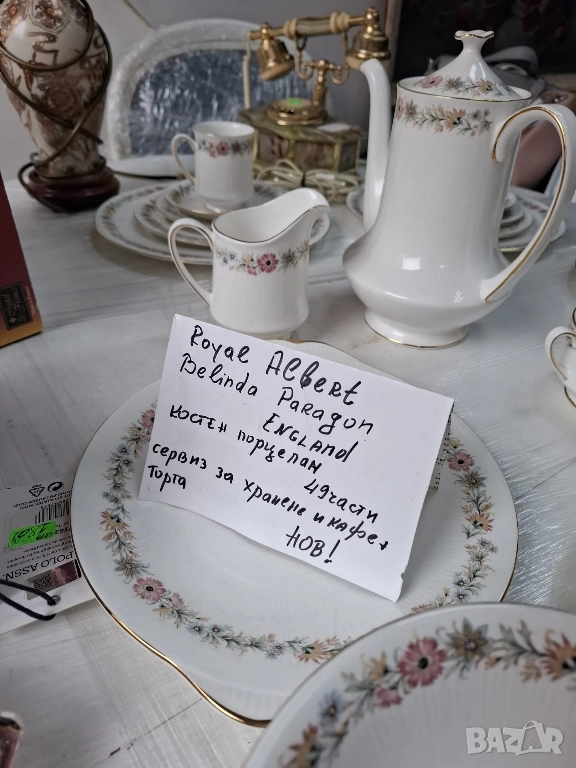 Royal Albert
Belinda Paragon
ENGLAND
костен порцелан
49 части
сервиз за хранене и кафе +
торта
НОВ!
POLO ASSN.
BAZAR